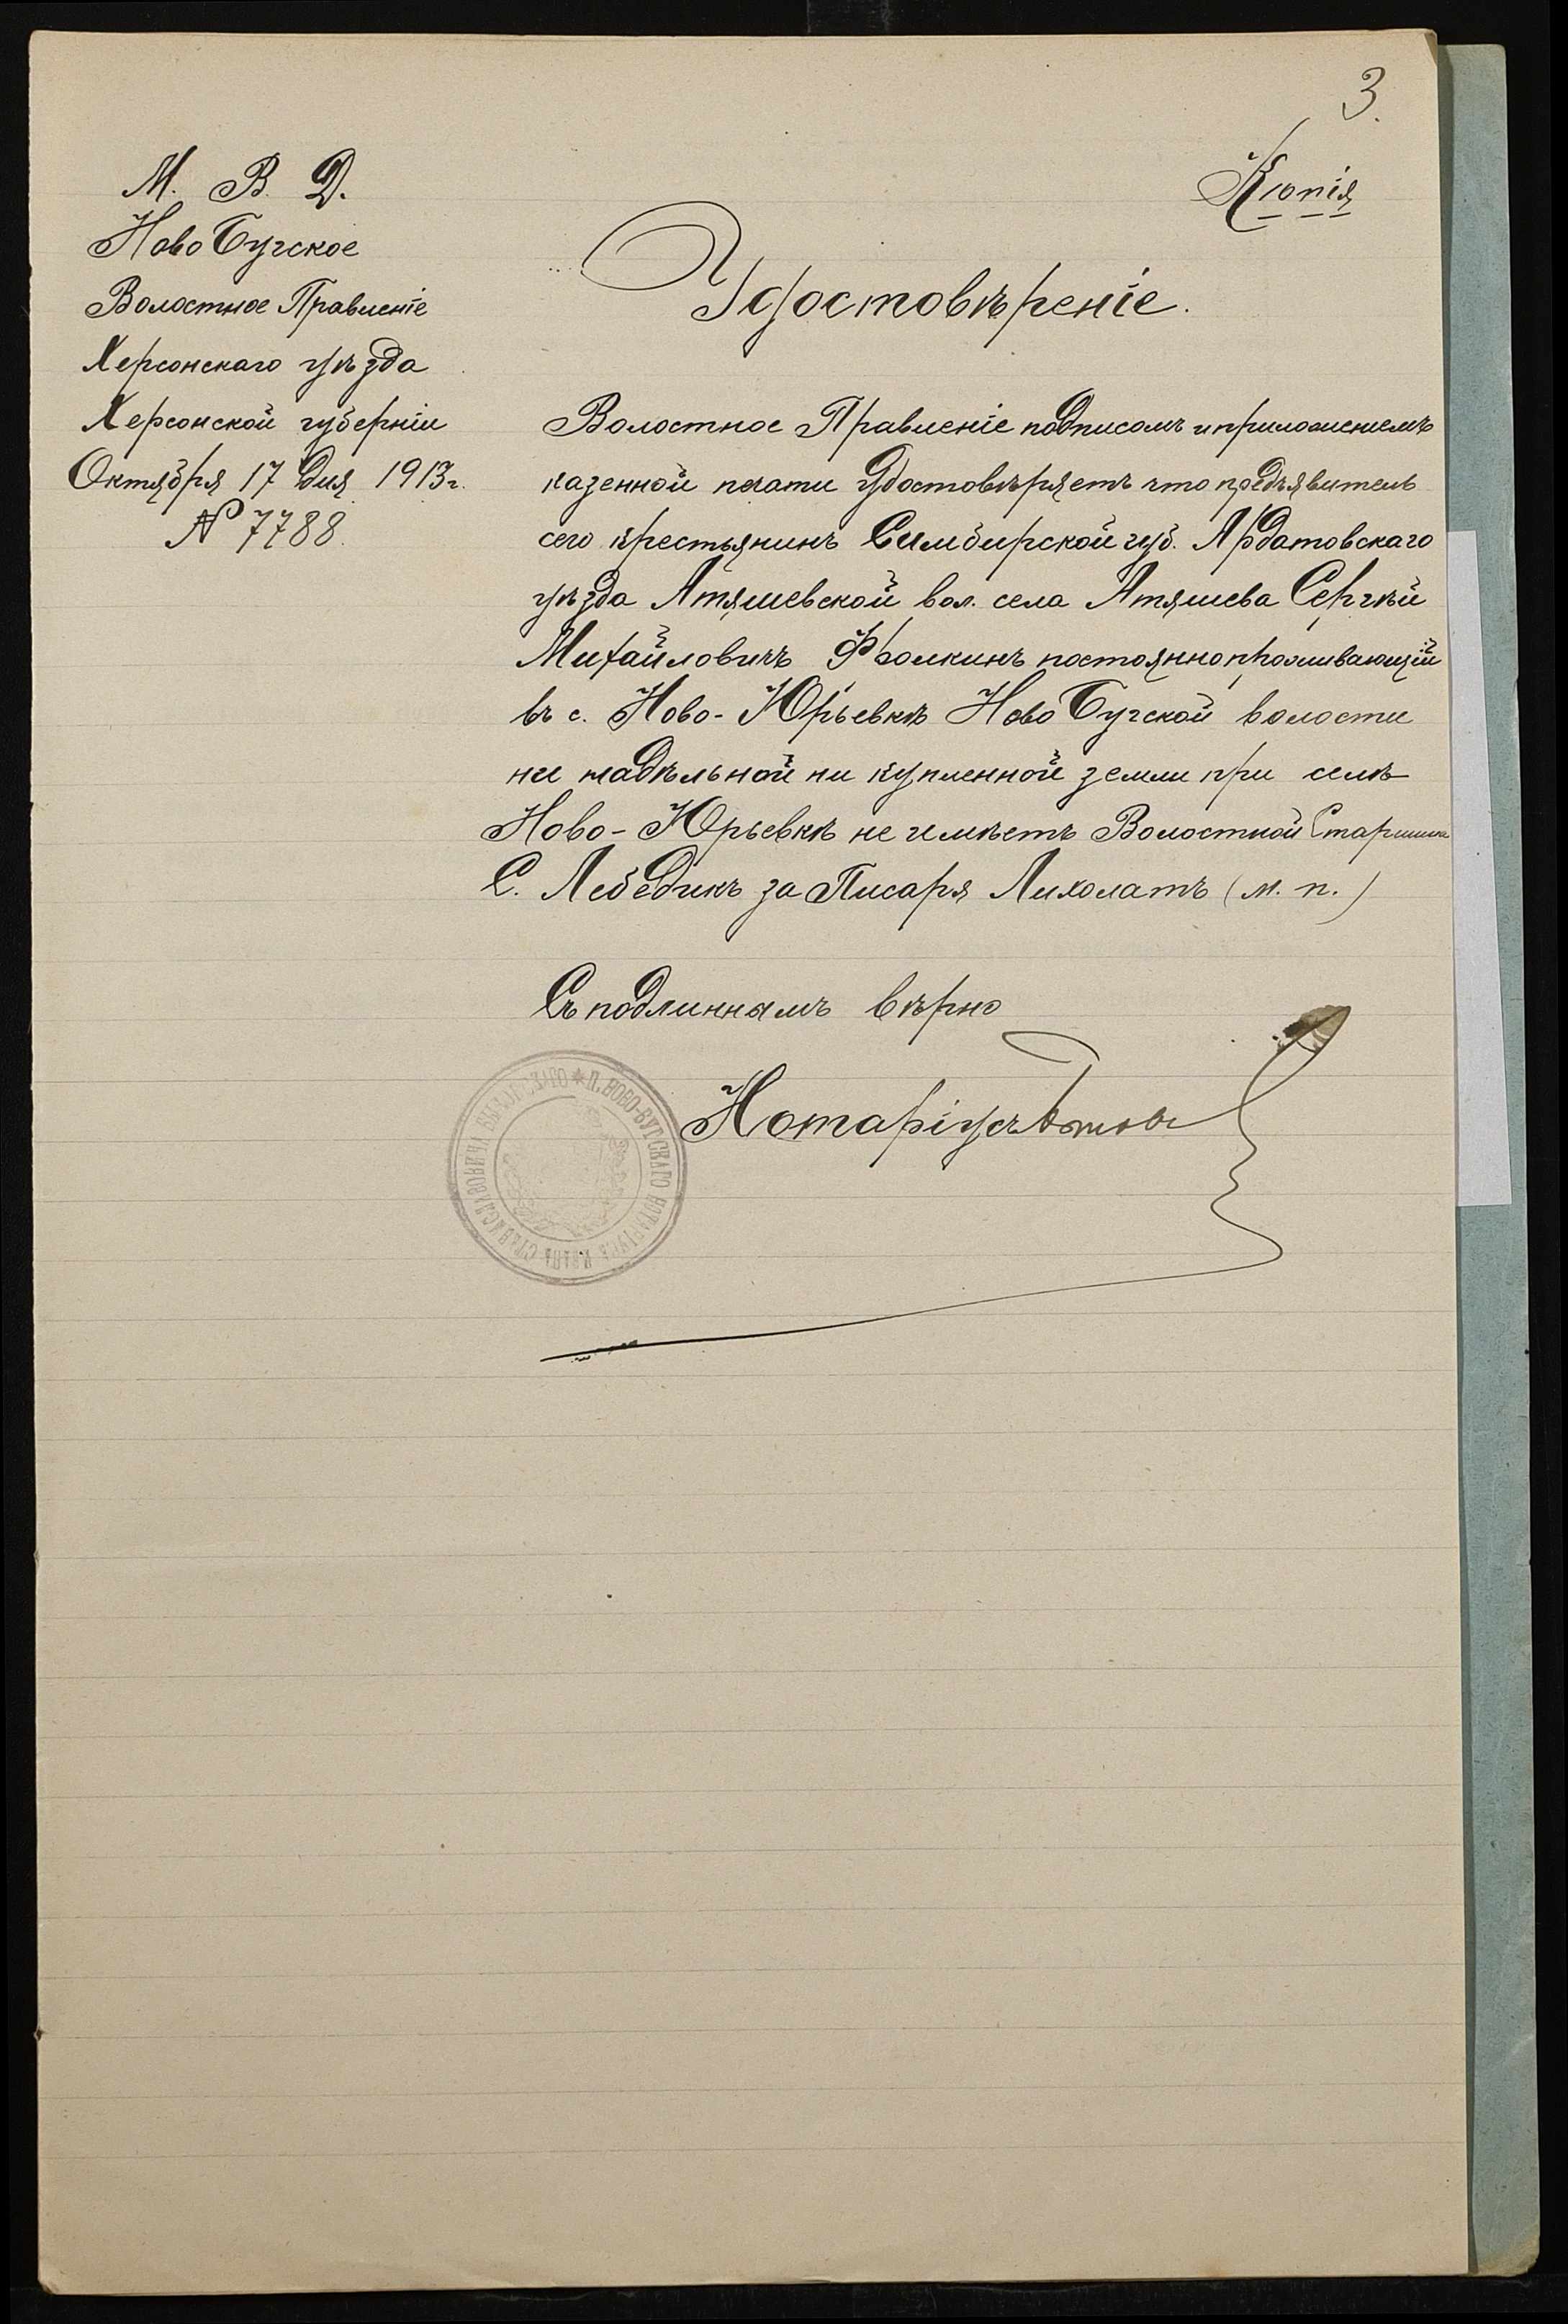 3.
Копія
М. В. Д.
Ново Бугское
Волостное Правленіе
Херсонскаго уѣзда
Херсонской губерніи
Октября 17 дня 1913 г.
№ 7788.
Удостовѣреніе.
Волостное Правленіе подписомъ и приложеніемъ
казенной печати удостовѣряетъ что предъявитель
сего крестьянинъ Симбирской губ. Ардатовскаго
уѣзда Атяшевской вол. села Атяшева Сергѣй
Михайловичъ постоянно проживающій
въ с. Ново-Юрьевкѣ Ново Бугской волости
ни надѣльной ни купленной земли при селѣ
Ново-Юрьевкѣ не имѣетъ Волостной Старшина
С. Лебедикъ за Писаря Лихолатъ (м. п.)
Съ подлиннымъ вѣрно
Нотаріусъ
* П. НОВО-БУГСКАГО НОТАРІУСА ИВАНА СТАНИСЛАВОВИЧА